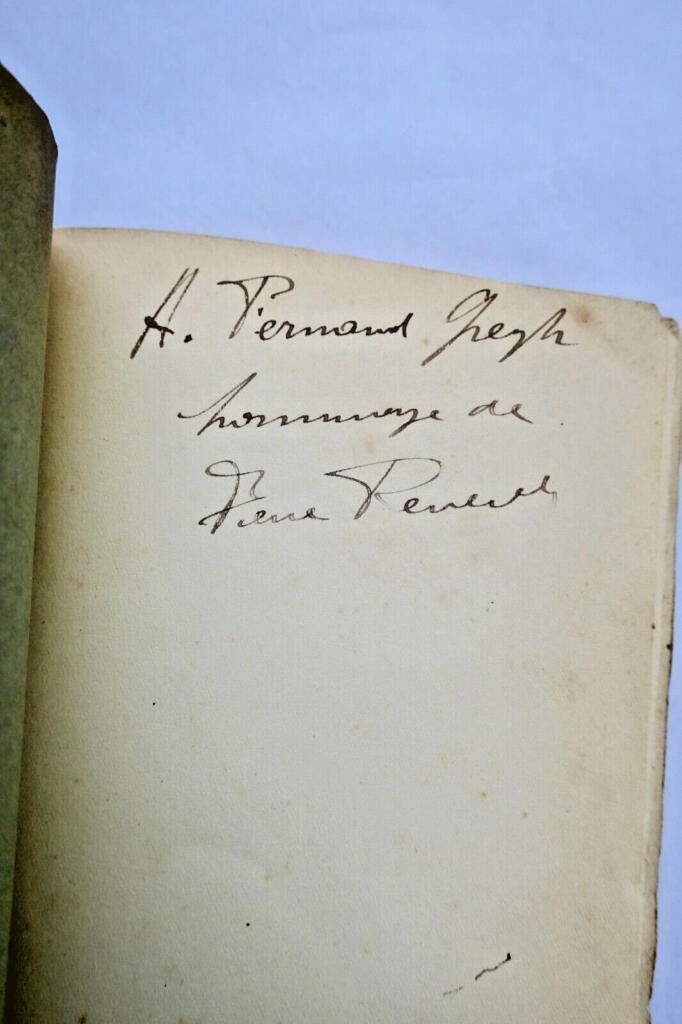 A. Fernand Gregh
hommage de
Pierre